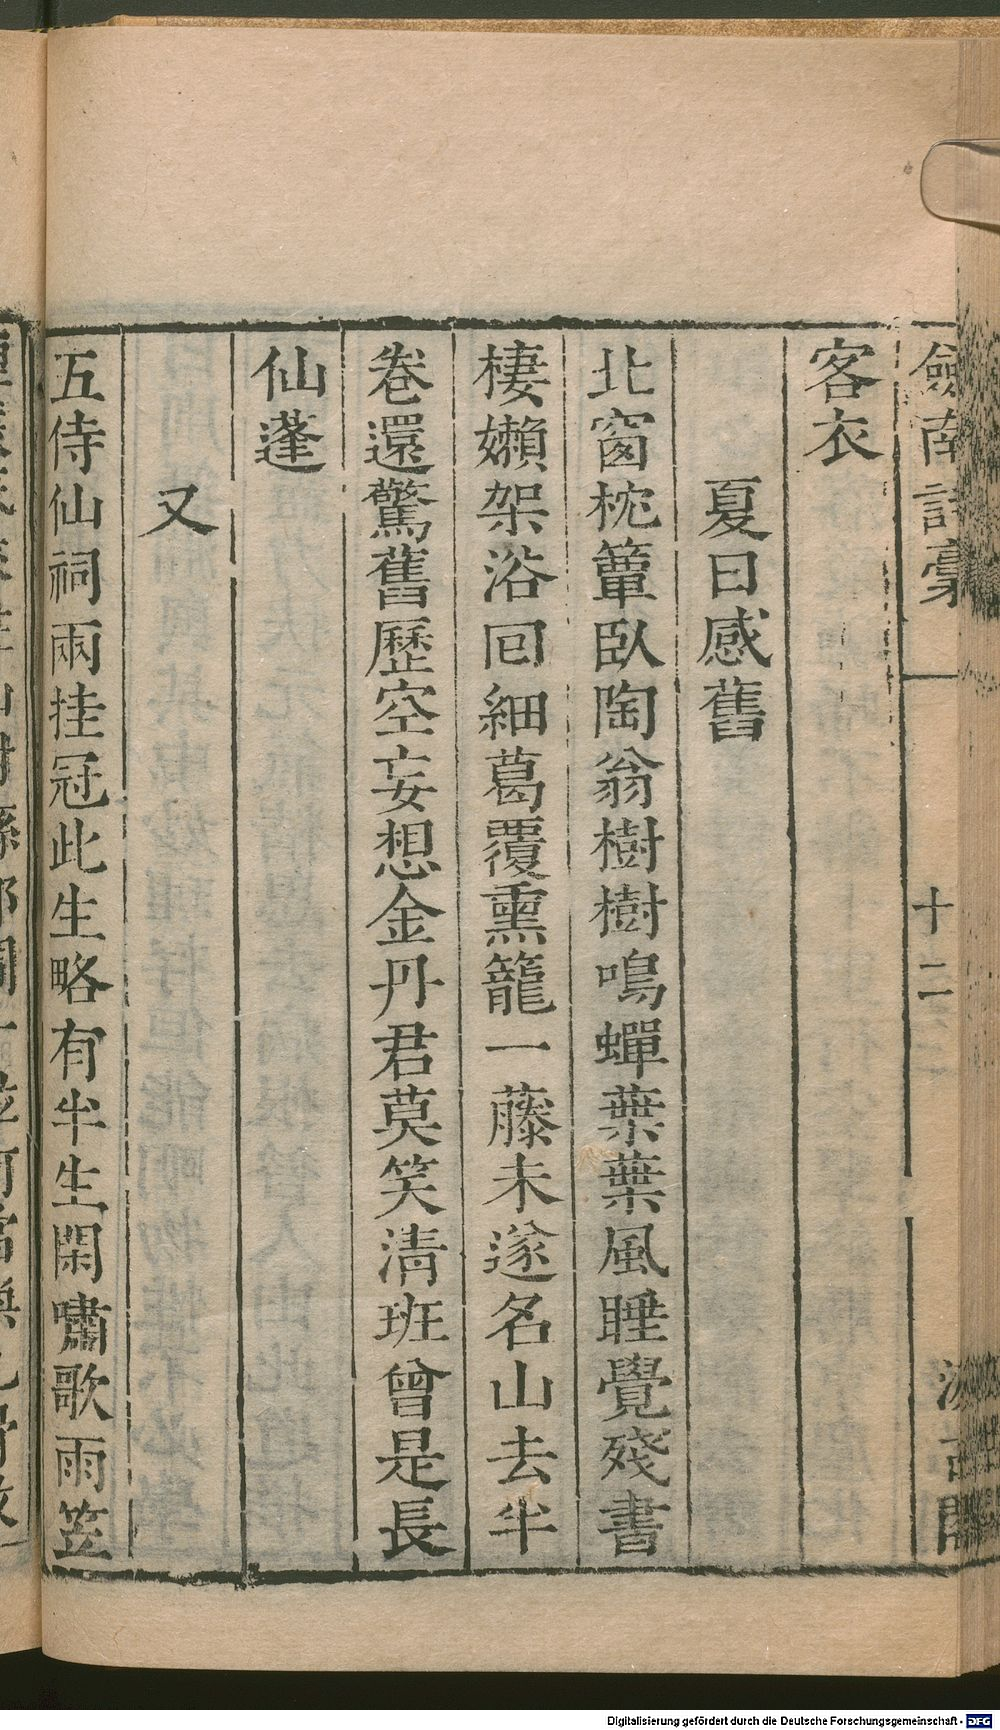 劔南詩稾
十二
汲古閣
客衣
夏日感舊
北窗枕簟臥陶翁樹樹鳴蟬葉葉風睡覺殘書
棲嬾架浴回細葛覆熏籠一藤未遂名山去半
卷還驚舊歷空妄想金丹君莫笑清班曾是長
仙蓬
又
五侍仙祠兩挂冠此生略有半生閑嘯歌雨笠
Digitalisierung gefördert durch die Deutsche Forschungsgemeinschaft - DFG